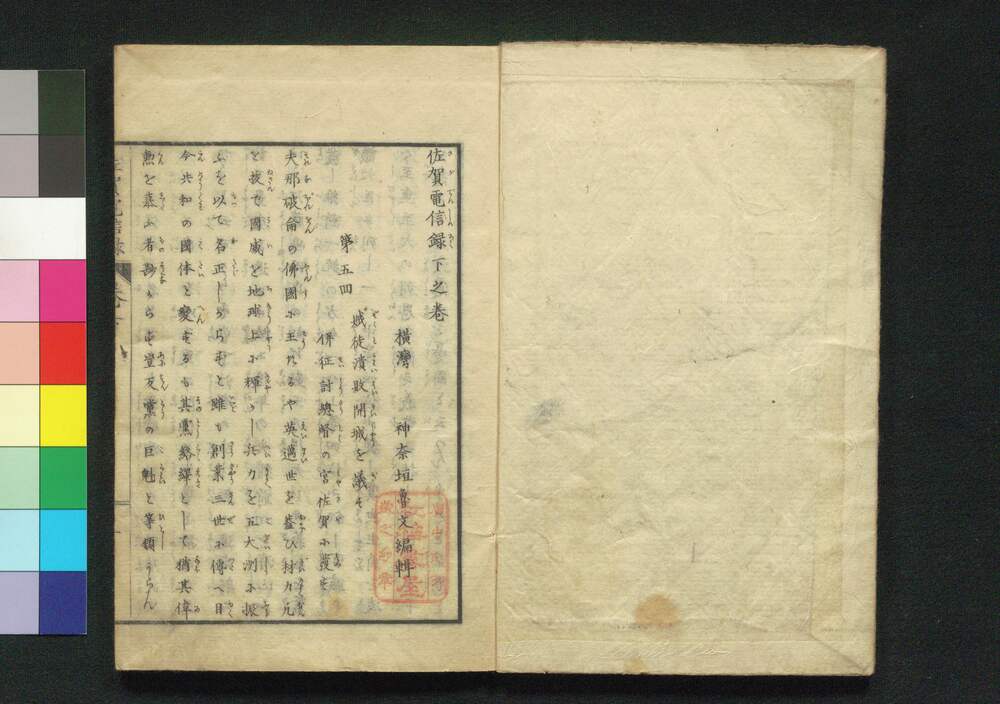 佐賀電信録下之巻
横濱 神奈垣魯文編輯
第五回
賊徒潰敗開城を議す
併征討總督の宮佐賀に發す
夫那破侖の佛國に王たるや英邁世を葢ひ材力凡
を抜て國威を地球上に輝かし兵力を五大洲に振
ふを以て名正しからずと雖も創業三世に傳へ目
今共和の國体と變ずるも其黨絡繹として猶其偉
勲を慕ふ者尠からず豈反黨の巨魁と等類ならん